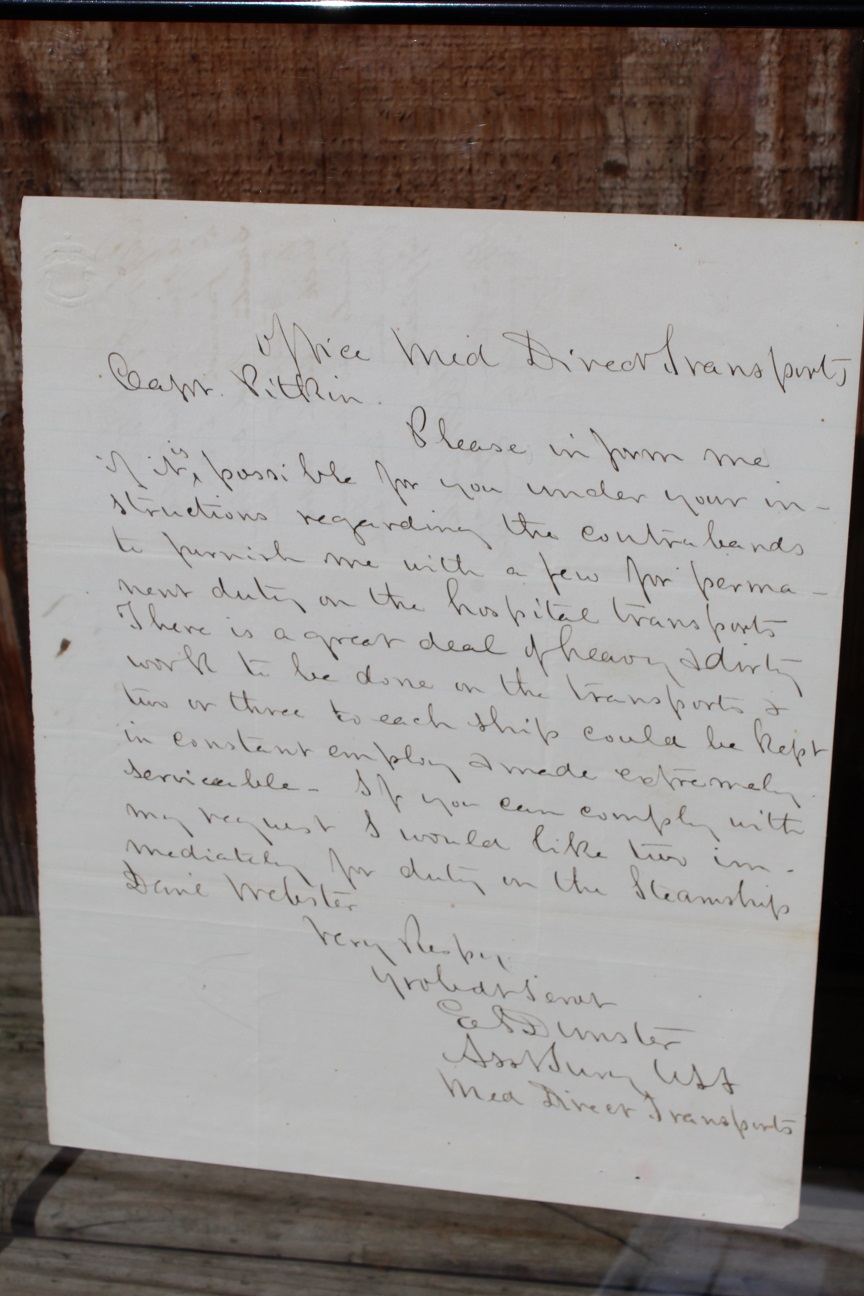 Office Med Direct Transports
Capt. Pitkin.
Please inform me
if it is possible for you under your in-
structions regarding the contrabands
to furnish me with a few for perma-
nent duty on the hospital transports
There is a great deal of heavy & dirty
work to be done on the transports &
two or three to each ship could be kept
in constant employ & made extremely
serviceable - If you can comply with
my request I would like two im-
mediately for duty on the Steamship
Danl Webster
Very Respy
Yr obedt Servt
Ed S Dunster
Asst Surg USA
Med Direct Transports